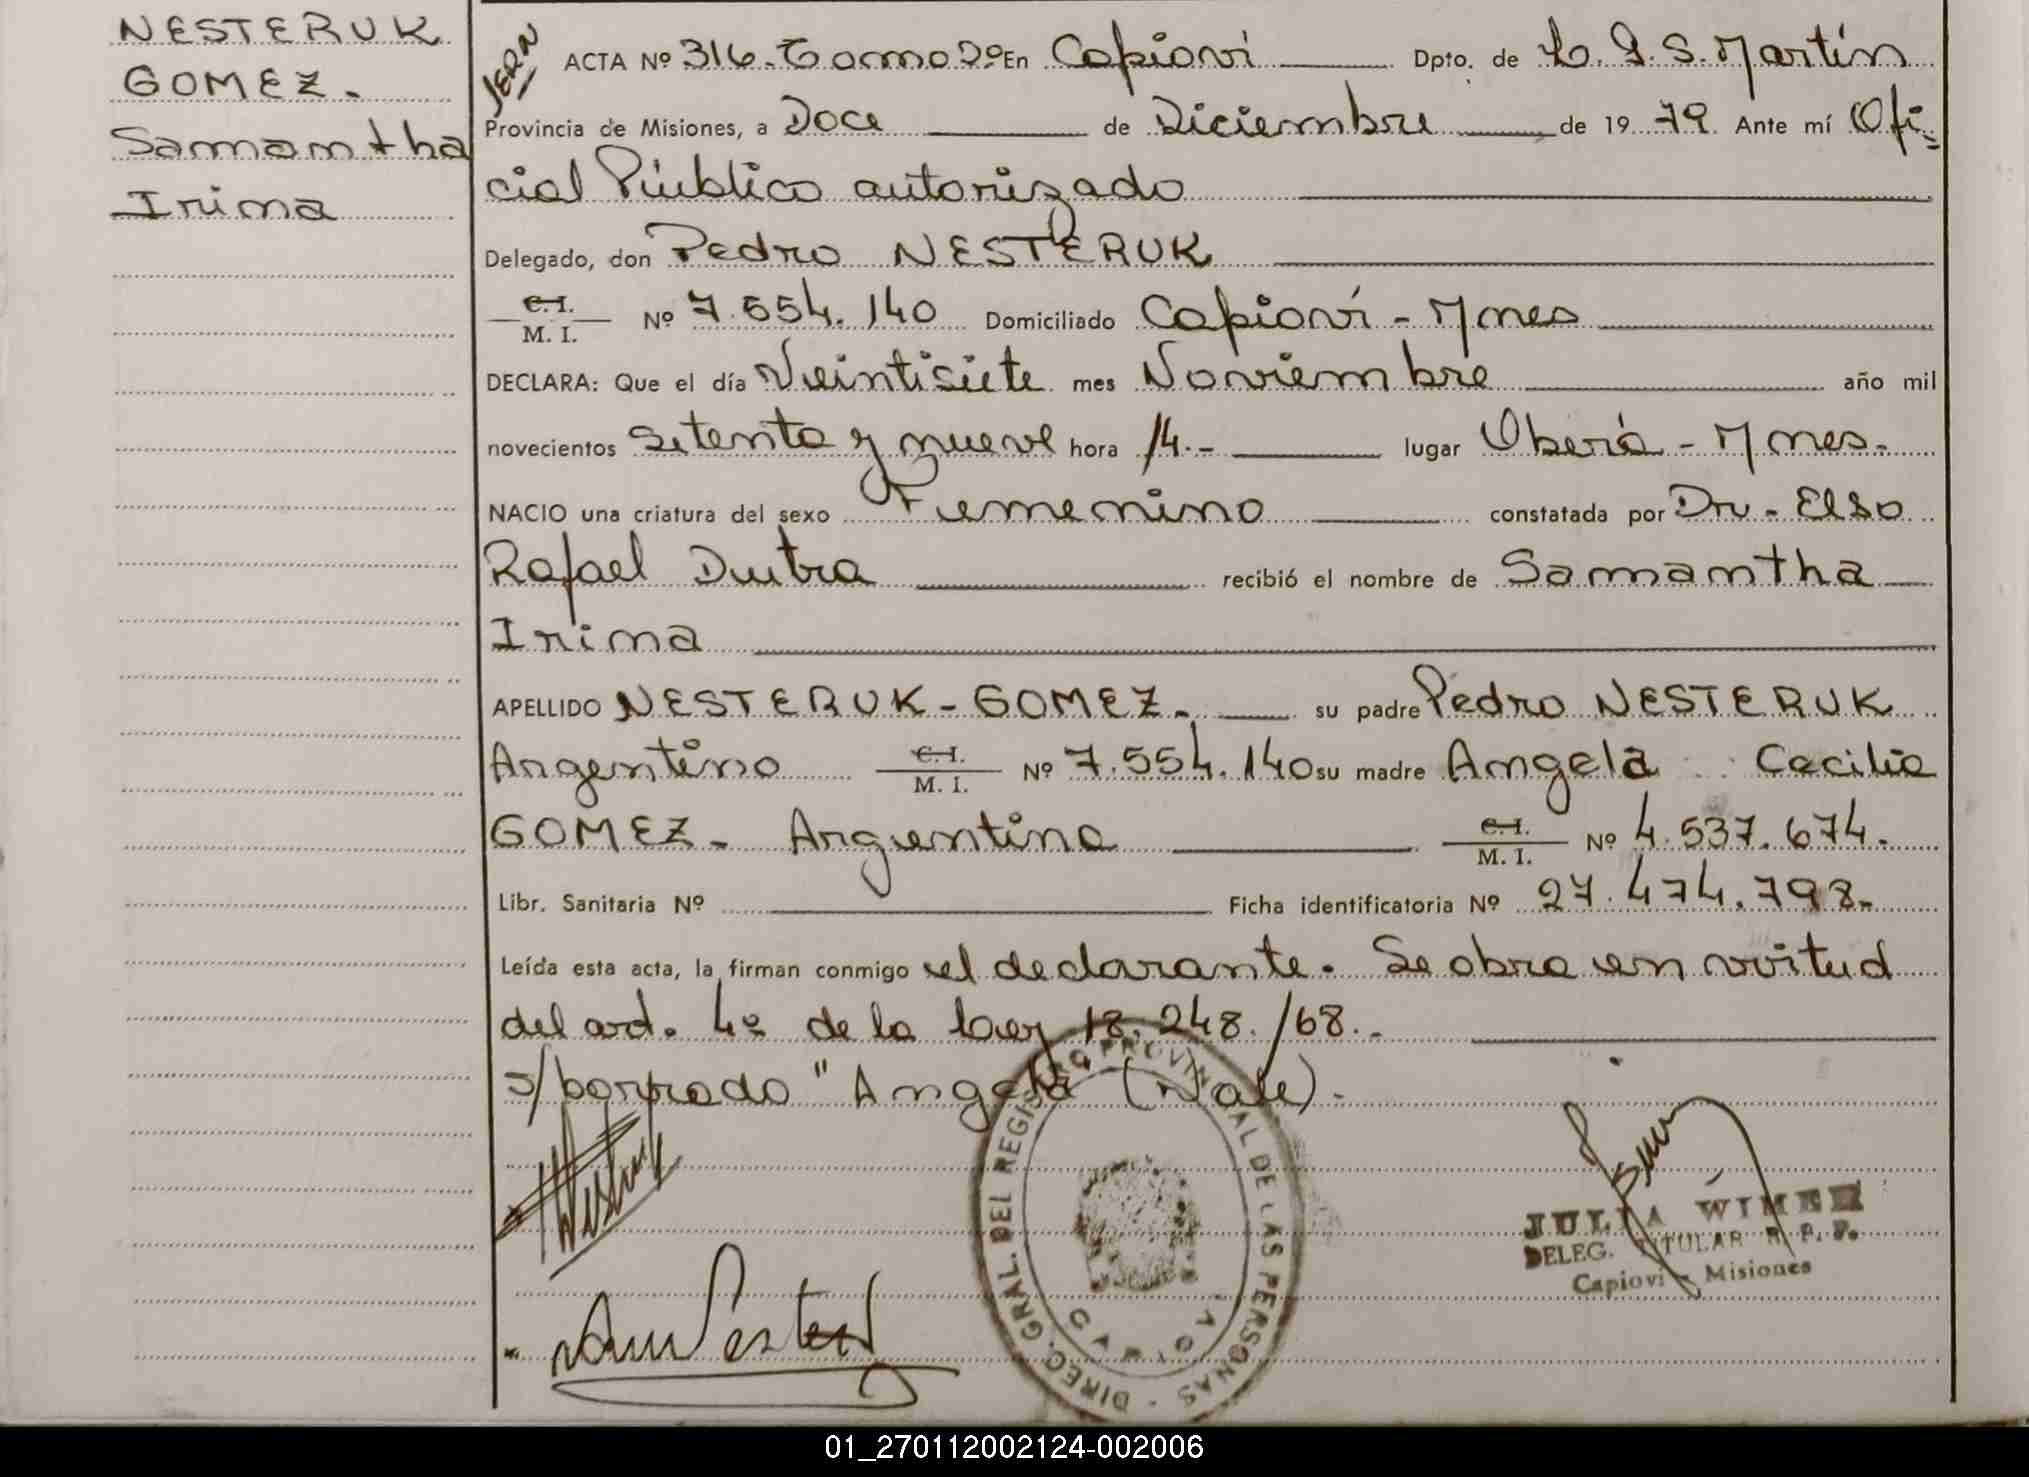 NESTERUK
GOMEZ.
Samantha
Irima
JERN
ACTA Nº 316. Tomo 2º En Capioví Dpto. de L. G. S. Martín
Provincia de Misiones, a Doce de Diciembre de 19 79. Ante mí Ofi-
cial Público autorizado
Delegado, don Pedro NESTERUK
C. I.
M. I. Nº 7.554.140 Domiciliado Capioví - Mnes
DECLARA: Que el día Veintisiete mes Noviembre año mil
novecientos Setenta y nueve hora 14.- lugar Oberá - Mnes.
NACIO una criatura del sexo Femenino constatada por Dr. Elso
Rafael Dutra recibió el nombre de Samantha
Irima
APELLIDO NESTERUK - GOMEZ. su padre Pedro NESTERUK
Argentino C. I. M. I. Nº 7.554.140 su madre Angela Cecilia
GOMEZ. Argentina C. I. M. I. Nº 4.537.674.
Libr. Sanitaria Nº Ficha identificatoria Nº 27.474.798.
Leída esta acta, la firman conmigo el declarante. Se obra en virtud
del ard. 4º de la Ley 18.248./68.-
s/borrado "Angela (Vale).
DIREC. GRAL. DEL REGISTRO PROVINCIAL DE LAS PERSONAS
CAPIOVI
JULIA WIMER
DELEG. TITULAR R. P. P.
Capioví - Misiones
01_270112002124-002006